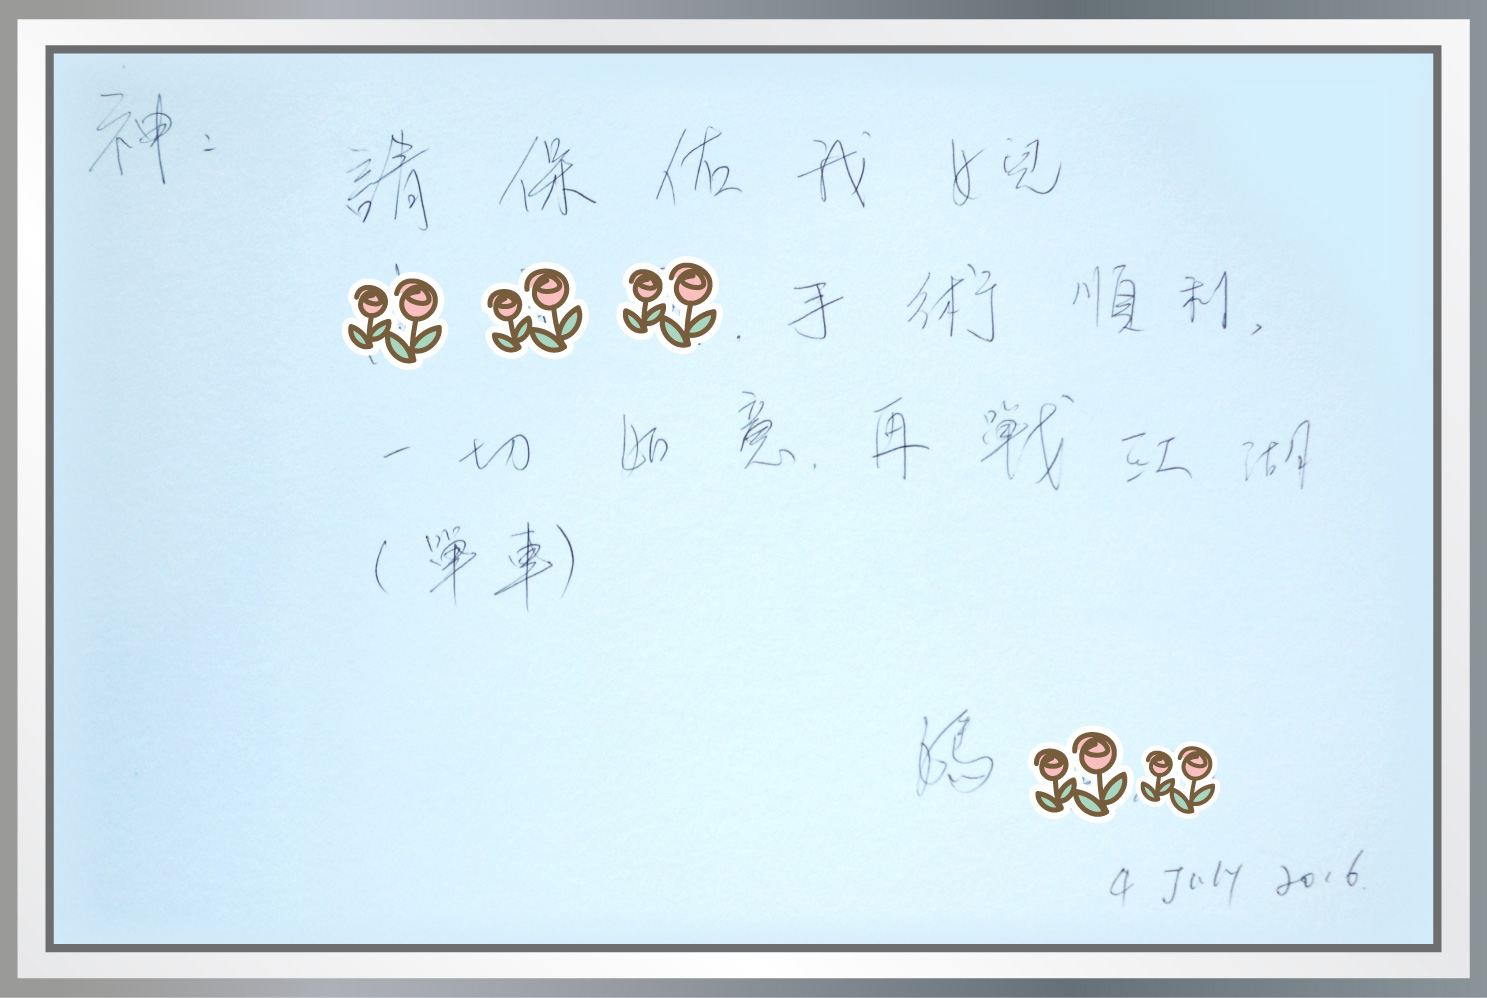 神：
請保佑我女兒
手術順利，
一切如意．再戰江湖
（單車）
媽
4 July 2016.